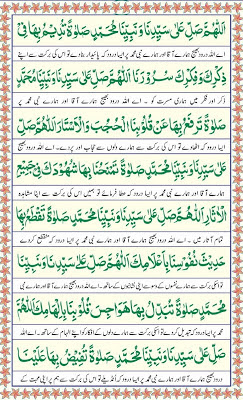 اَللّٰهُمَّ صَلِّ عَلٰى سَيِّدِنَا وَنَبِيِّنَا مُحَمَّدٍ صَلٰوةً تُدِيْمُ بِهَا فِيْ
اے اللہ درود بھیج ہمارے آقا اور ہمارے نبی محمد پر ایسا درود کہ تو اس کی برکت سے اپنے
ذِكْرِكَ وَفِكْرِكَ سُرُوْرَنَا اَللّٰهُمَّ صَلِّ عَلٰى سَيِّدِنَا وَنَبِيِّنَا مُحَمَّدٍ
ذکر اور فکر میں ہماری مسرت کو ۔ اے اللہ درود بھیج ہمارے آقا اور ہمارے نبی محمد پر
صَلٰوةً تَرْفَعُ بِهَا عَنْ قُلُوْبِنَا الْحُجُبَ وَالْاَسْتَارَ اَللّٰهُمَّ صَلِّ
ایسا درود کہ اس کی برکت سے ہمارے دلوں سے حجاب اور پردے۔ اے اللہ درود بھیج
عَلٰى سَيِّدِنَا وَنَبِيِّنَا مُحَمَّدٍ صَلٰوةً تَمْنَحُنَا بِهَا شُهُوْدَكَ فِيْ جَمِيْعِ
ہمارے آقا اور ہمارے نبی محمد پر ایسا درود کہ عطا فرمائے تو ہمیں اس کی برکت سے اپنا مشاہدہ
الْاٰثَارِ اَللّٰهُمَّ صَلِّ عَلٰى سَيِّدِنَا وَنَبِيِّنَا مُحَمَّدٍ صَلٰوةً تَقْطَعُ بِهَا
تمام آثار میں ۔ اے اللہ درود بھیج ہمارے آقا اور ہمارے نبی محمد پر ایسا درود کہ منقطع کردے
حَدِيْثَ نُفُوْسِنَا بِاِعْلَامِكَ اَللّٰهُمَّ صَلِّ عَلٰى سَيِّدِنَا وَنَبِيِّنَا
اے اللہ درود بھیج ہمارے آقا اور ہمارے نبی
مُحَمَّدٍ صَلٰوةً تُبَدِّلُ بِهَا هَوَاجِسَ قُلُوْبِنَا بِاِلْهَامِكَ اَللّٰهُمَّ
محمد پر ایسا درود کہ تبدیل کردے تو اسکی برکت سے ہمارے دلوں کے افکار کو اپنے الہام کے ساتھ۔ اے اللہ
صَلِّ عَلٰى سَيِّدِنَا وَنَبِيِّنَا مُحَمَّدٍ صَلٰوةً تُفِيْضُ بِهَا عَلَيْنَا
درود بھیج ہمارے آقا اور ہمارے نبی محمد پر ایسا درود کہ تو اس کی برکت سے ہم پر اپنی محبت کے